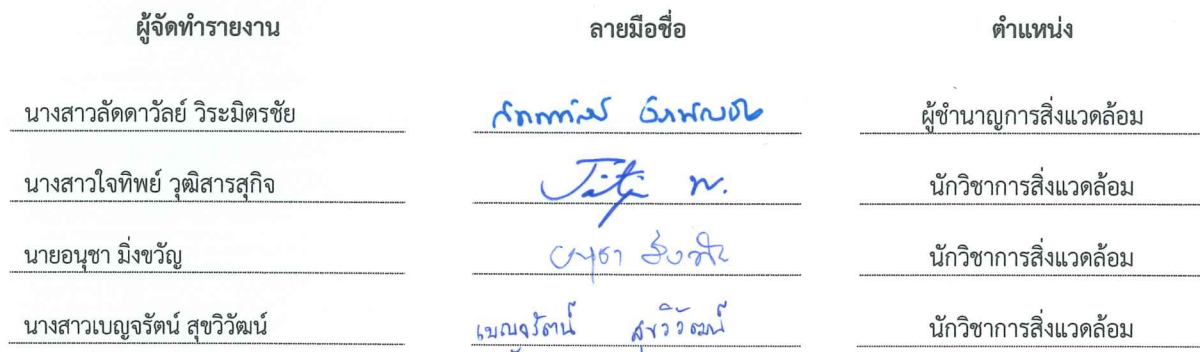 ผู้จัดทำรายงาน ลายมือชื่อ ตำแหน่ง
นางสาวลัดดาวัลย์ วิระมิตรชัย ผู้ชำนาญการสิ่งแวดล้อม
นางสาวใจทิพย์ วุฒิสารสุกิจ นักวิชาการสิ่งแวดล้อม
นายอนุชา มิ่งขวัญ นักวิชาการสิ่งแวดล้อม
นางสาวเบญจรัตน์ สุขวิวัฒน์ เบญจรัตน์ สุขวิวัฒน์ นักวิชาการสิ่งแวดล้อม